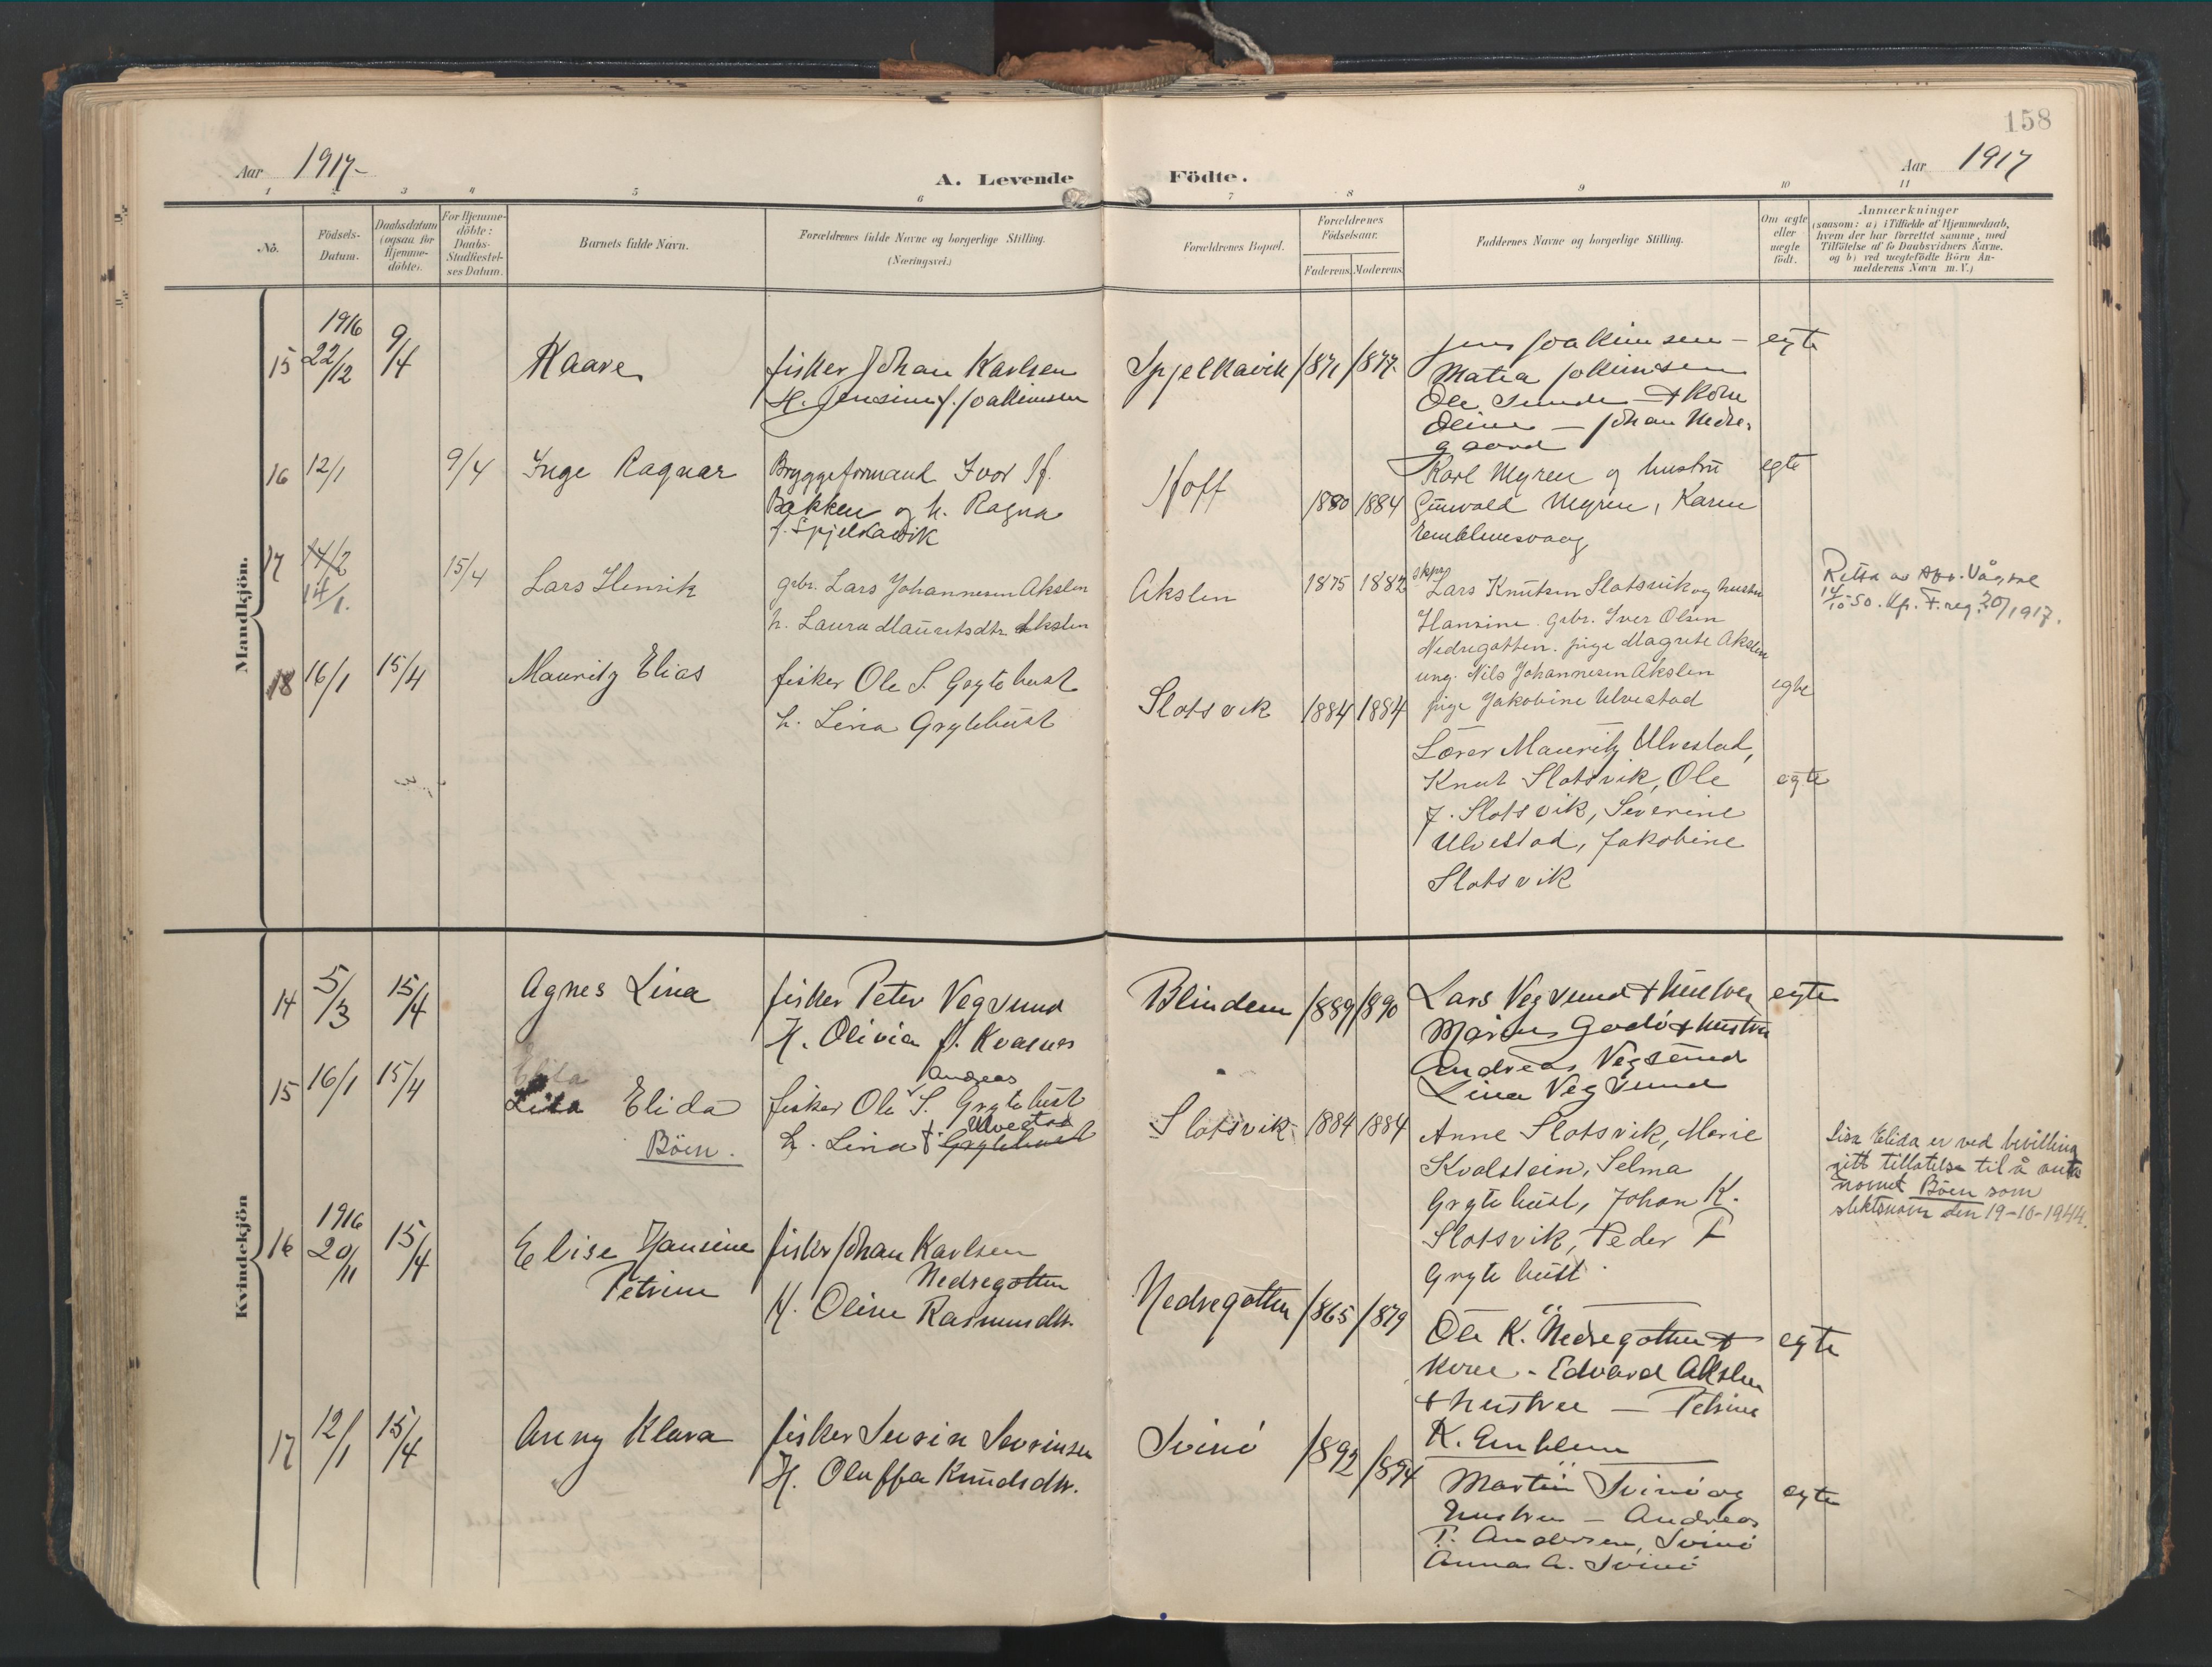 158
Aar 1917-
A. Levende Födte.
Aar 1917
1 2 3 4 5 6 7 8 9 10 11
No.
Födsels-Datum.
Daabsdatum (ogsaa for Hjemme-döbte).
For Hjemme-döbte: Daabs-Stadfæstel-ses Datum.
Barnets fulde Navn.
Forældrenes fulde Navne og borgerlige Stilling.
(Næringsvei.)
Forældrenes Bopæl.
Forældrenes Födselsaar.
Faderens. Moderens.
Faddernes Navne og borgerlige Stilling.
Om ægte eller uægte födt.
Anmærkninger
(saasom: a) i Tilfælde af Hjemmedaab,
hvem der har forrettet samme, med
Tilföielse af to Daabsvidners Navne.
og b) ved uegtefödte Börn An-
melderens Navn m. V.)
Mandkjön.
15 1916 22/12 9/4 Kaare
fisker Johan Karlsen
H. Jensine f. Joakimsen
Spjelkavik 1871 1877
Jens Joakimsen -
Matea Jokimsen
Ole Sunde + Kone
Oline - Johan Nedre-
gaard
egte
16 12/1 9/4 Inge Ragnar
Bryggeformand Ivar
Bakken og h. Ragna
f. Spjelkavik
Hoff 1880 1884
Karl Myren og hustru
Gunvald Myren, Karen
Emblemsvaag
egte
17 14/2 14/1. 15/4 Lars Henrik
gbr. Lars Johannesen Akslen
h. Laura Mauritsdtr. Akslen
Akslen 1875 1882
skpr. Lars Knutsen Slotsvik og hustru
Hansine. gbr. Iver Olsen
Nedregotten. pige Magrete Akslen
ung. Nils Johannesen Akslen
pige Jakobine Ulvestad
egte
20/1917.
18 16/1 15/4 Mauritz Elias
fisker Ole S. Grytehust
h. Lina Grytehust
Slotsvik 1884 1884
Lærer Mauritz Ulvestad,
Knut Slotsvik, Ole
J. Slotsvik, Severine
Ulvestad, Jakobine
Slotsvik
egte
Kvindekjön
14 5/3 15/4 Agnes Lina
fisker Peter Vegsund
H. Olivia f. Kvasnes
Blindem 1889 1890
Lars Vegsund + hustru
Marius Godö + hustru
Andreas Vegsund
Lina Vegsund
egte
15 16/1 15/4 Lisa Elida
Böen.
Andreas
fisker Ole S. Grytehust
Ulvestad
h. Lina f. Grytehust
Slotsvik 1884 1884
Anne Slotsvik, Marie
Kvalstein, Selma
Grytehust, Johan K.
Slotsvik, Peder F
Grytehust
Lisa Elida er ved bevilling
gitt tillatelse til å anta
navnet Böen som
slektsnavn den 19-10-1944.
16 1916 20/11 15/4 Elise Jansine
Petrine
fisker Johan Karlsen
Nedregotten
H. Oline Rasmusdtr.
Nedregotten 1865 1879
Ole K. Nedregotten +
Kone - Edvard Akslen
+ hustru - Petrine
K. Emblem
egte
17 12/1 15/4 Anny Klara
fisker Sevrin Sevrinsen
H. Oluffa Knudsdtr.
Svinö 1892 1894
Martin Svinö og
hustru - Andreas
P. Andersen, Svinö
Anna A. Svinö
egte